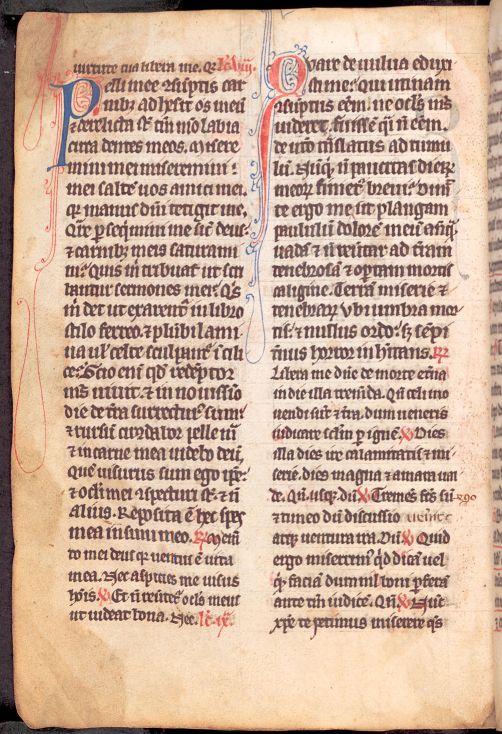 uirtute tua libera me. Qr Lc. viii.
Pelli mee assumptis car
nibus adhesit os meum
& derelicta st tm mo labia
circa dentes meos. Misere
mini mei miseremini
mei saltem uos amici mei.
qr manus dni tetigit me.
Qre persequimini me sic deus
& carnibz meis saturami
ni. Quis m tribuat ut scri
bantur sermones mei. Qs
m det ut exarentr in libro
stilo ferreo. & plumbi lami
na ul celte sculpantr i sili
ce. Scio eni qd redemptor
ms uiuit. & in nouissimo
die de tra surrecturs sum
& rursum circumdabor pelle m
& in carne mea uidebo deum.
Quem uisurus sum ego ipse.
& oculi mei aspecturi st. & n
alius. Reposita e hec spes
mea in sinu meo. R Memen
to mei deus qr uentus e uita
mea. Nec aspiciet me uisus
hois. V Et n reuertet oclus meus
ut uideat bona. Nec. Lc. ix.
Quare de uulua eduxi
sti me. Qui utinam
assumptus eem. ne oclus me
uideret. Fuissem qi n eem.
de utero translatus ad tumu
lum. Nunqd n paucitas dierum
meorum finietr breui. Dimit
te ergo me ut plangam
paululum dolorem meum anteqm
uada & n reuertar ad tram
tenebrosa & optam mortis
caligine. Terram miserie &
tenebrarum ubi umbra mor
tis. & nullus ordo. sz sempi
ternus horror inhitans. R
Libera me dne de morte eterna
in die illa tremenda. Qn celi mo
uendi sunt & tra. dum ueneris
iudicare sclm per ignem. V Dies
illa dies ire calamitatis & mi
serie. dies magna & amara ual
de. Qn usqz. Dum. V Tremens fcs sum ego
& timeo dum discussio uenit
atqz uentura ira. Dum. V Quid
ergo miserrimus qd dicam uel
qd faciam dum nil boni perfera
ante tm iudice. Qn. V Nunc
xpe te petimus miserere qs